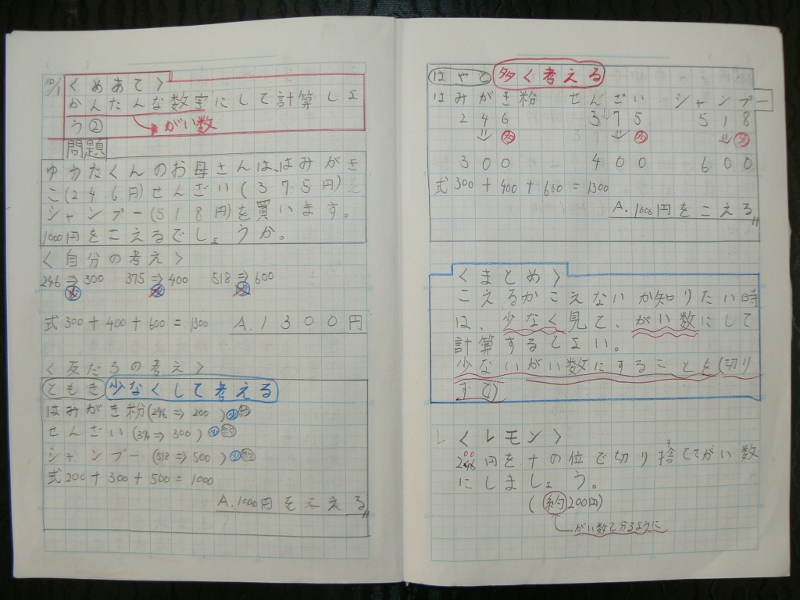 10/1
<めあて>
かんたんな数字にして計算しよ
う②
がい数
問題
ゆうたくんのお母さんは、はみがき
こ(246円)せんざい(375円)
シャンプー(518円)を買います。
1000円をこえるでしょうか。
<自分の考え>
246⇒300 375⇒400 518⇒600
式300+400+600=1300 A.1300円
<友だちの考え>
ともき 少なくして考える
はみがき粉(246⇒200)
せんざい(375⇒300)
シャンプー(518⇒500)
式200+300+500=1000
A.1000円をこえる
はやと 多く考える
はみがき粉 せんざい シャンプー
246 375 518
⇓多 ⇓多 ⇓多
300 400 600
式300+400+600=1300
A.1000円をこえる
<まとめ>
こえるかこえないか知りたい時
は、少なく見て、がい数にして
計算するとよい。
少ないがい数にすることを(切り
すて)
<レモン>
246円を十の位で切り捨ててがい数
にしましょう。
(約200円)
がい数と分るように